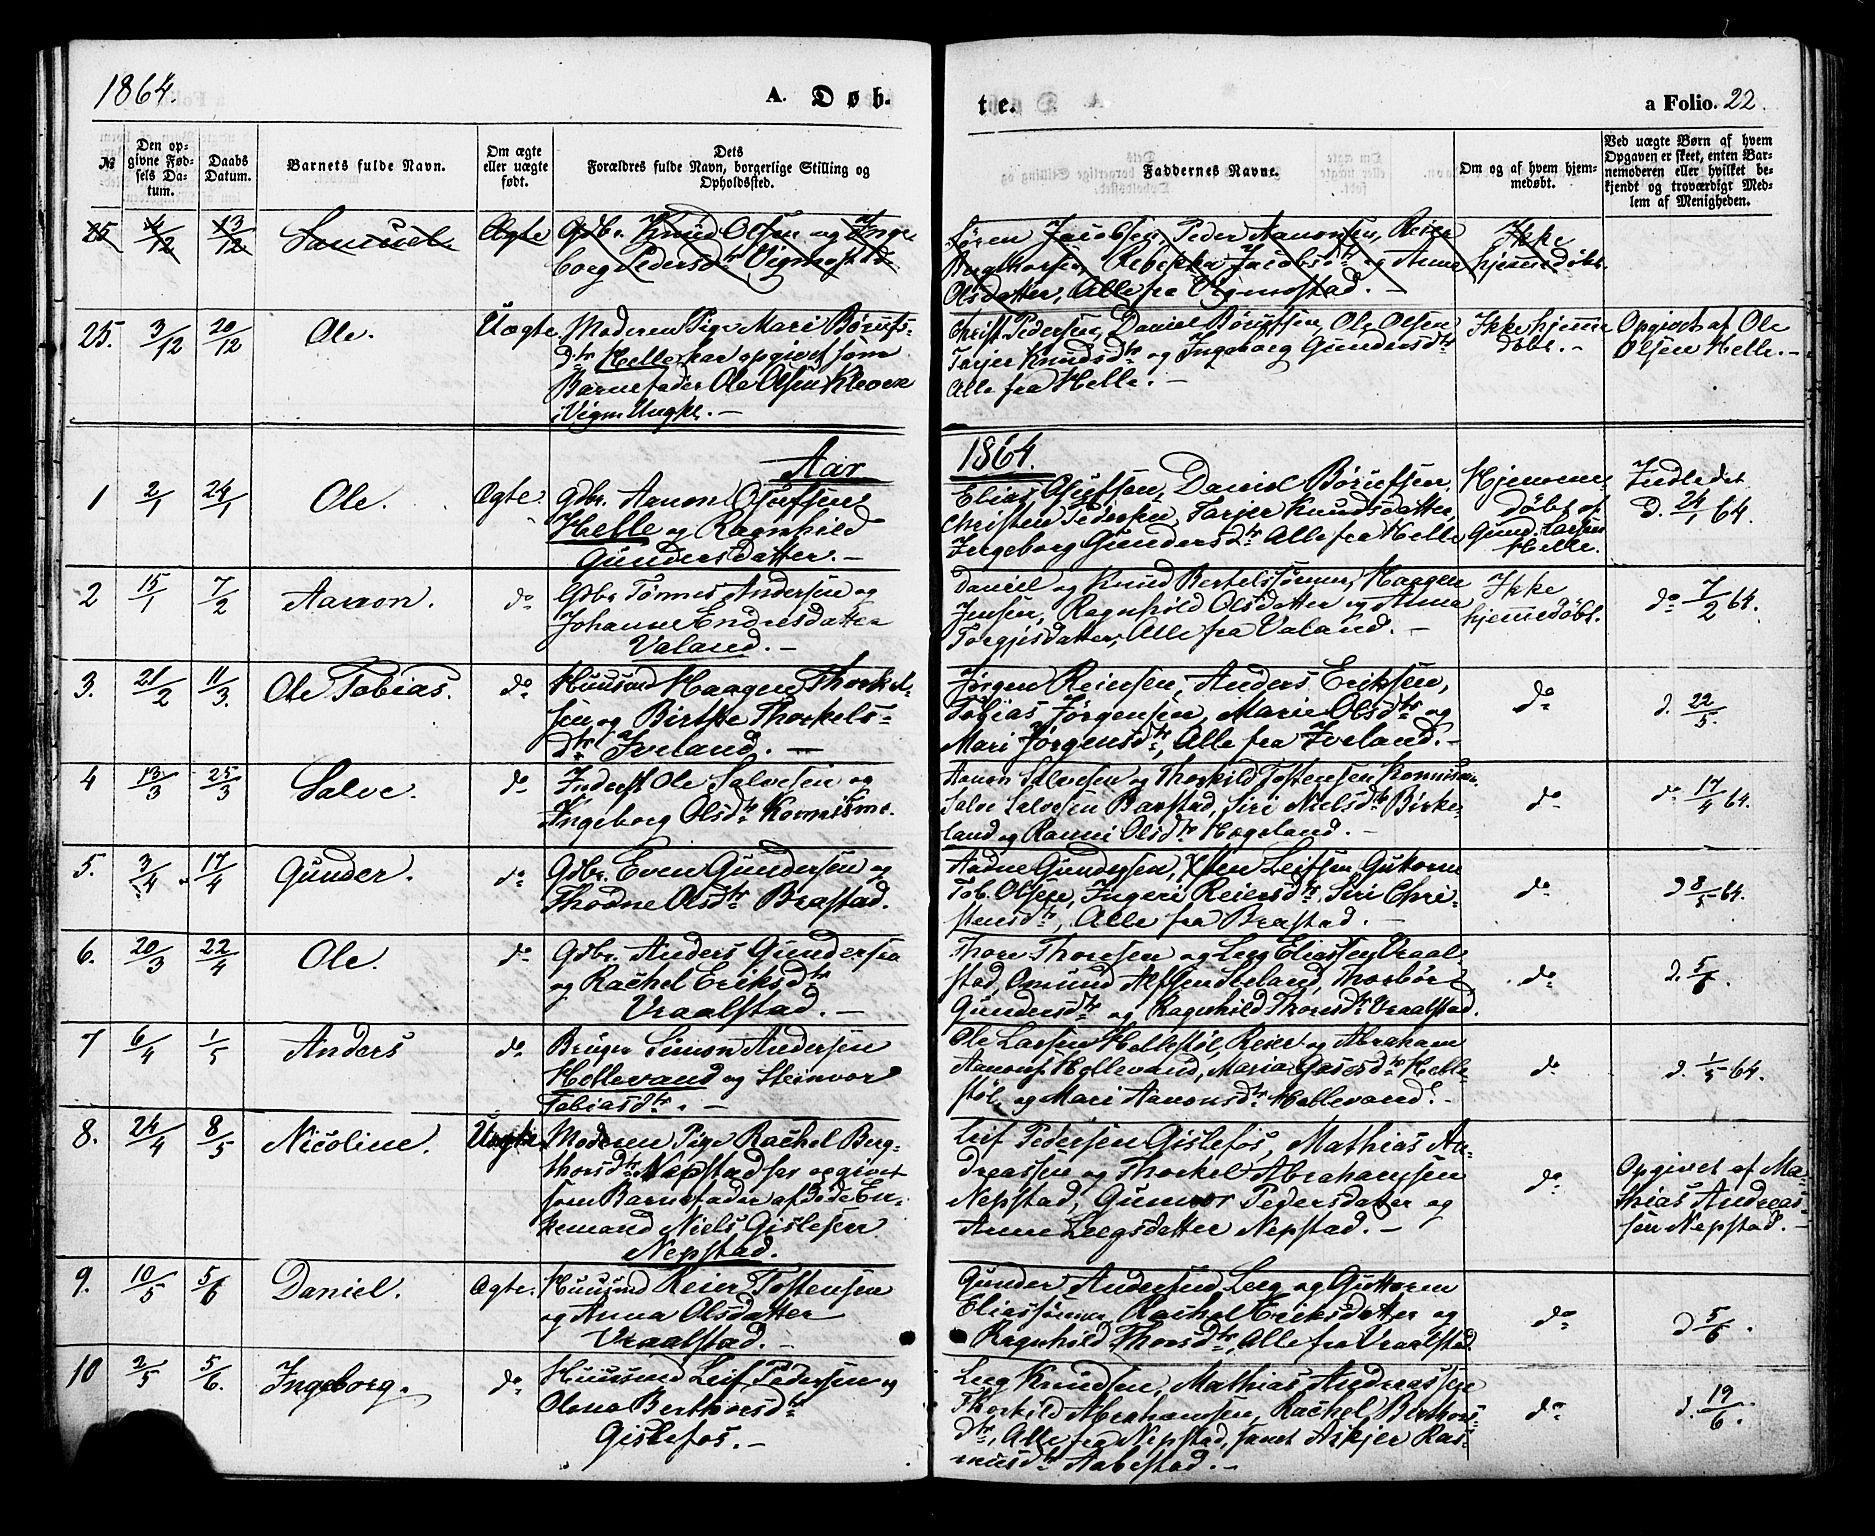 1864.
A. Døb.
te.
a Folio. 22.
№
Den op-
givne Fød-
sels Da-
tum.
Daabs
Datum.
Barnets fulde Navn.
Om ægte
eller uægte
født.
Dets
Forældres fulde Navn, borgerlige Stilling og
Opholdssted.
Faddernes Navne.
Om og af hvem hjem-
medøbt.
Ved uægte Børn af hvem
Opgaven er skeet, enten Bar-
nemoderen eller hvilket be-
kjendt og troværdigt Med-
lem af Menigheden.
25 4/12 13/12 Samuel Ægte
Gdbr. Knud Olsen og Inge
borg Pedersdtr Vigmostad
Søren Jacobsen, Peder Aanonsen, Reier
Bergthorsen, Rebekka Jacobsdtr og Anne
Olsdatter, Alle fra Vigmostad. -
Ikke
hjemmedøbt.
25. 3/12 20/12 Ole. Uægte
Moderen Pige Mari Børufs-
dtr Helle har opgivet som
Barnefader Ole Olsen Kleven
i Vigm. Ungk. -
Christ. Pedersen, Daniel Børufsen, Ole Olsen
Tarjer Knudsdtr og Ingeborg Gundersdtr
Alle fra Helle. -
Ikke hjemme
døbt. -
Opgivet af Ole
Olsen Helle. -
Aar
1864.
1 2/1 24/1 Ole. Ægte.
Gdbr. Aanon Osufsen
Helle og Ragnhild
Gundersdatter. -
Elias Osufsen, Daniel Børufsen,
Christen Pedersen, Tarjer Knudsdatter,
Ingeborg Gundersdtr Alle fra Helle
Hjemme-
døbt af
Gund. Larsen
Helle.
Indledet
d. 24/1 64.
2 15/1 7/2 Aanon. do
Gdbr Tønnes Andersen og
Johanne Endresdatter
Valand. -
Daniel og Knud Bertelssønner, Haagen
Jensen, Ragnhild Olsdatter og Anna
Torgjisdatter, Alle fra Valand. -
Ikke
hjemmedøbt.
do 7/2 64.
3. 21/2 11/3. Ole Tobias. do
Huusmd Haagen Thorkel-
sen og Birthe Thorkels-
dtr Iveland. -
Jørgen Reiersen, Anders Eriksen,
Tobias Jørgensen, Marie Olsdtr og
Mari Jørgensdtr, Alle fra Iveland. -
do
d. 22/5.
4 13/3 25/3 Salve. do
Inderst Ole Salvesen og
Ingeborg Olsdtr
Aanon Salvesen og Thorkild Tostensen
Salve Salvesen Barstad, Siri Nielsdtr Birke-
land og Ranni Olsdtr Høgeland. -
do
do 17/4 64.
5. 3/4 17/4 Gunder. do
Gdbr. Even Gundersen og
Thodne Olsdtr Brastad.
Aadne Gundersen, Leifsen, Gutorm
Tob. Olsen, Ingeri Reiersdtr, Siri Chri-
stensdtr, Alle fra Brastad. -
do
d 8/5 64.
6. 20/3 22/4 Ole. do
Gdbr. Anders Gundersen
og Rachel Eriksdtr
Vraalstad. -
Thore Thoresen og Leeg Eliassen Vraal-
stad, Omund Alfsen Ileland, Thorbør
Gundersdtr og Ragnhild Thorsdtr Vraalstad.
do
d. 5/6.
7 6/4 1/5 Anders do
Bruger Simon Andersen
Hellevand og Steinvor
Tobiasdtr. -
Ole Larsen Hellestøl, Reier og Abraham
Aanons. Hellevand, Maria Aasesdtr Helle-
støl, og Mari Aanonsdtr Hellevand. -
do
d. 1/5 64.
8. 24/4 8/5 Nicoline. Uægte
Moderen Pige Rachel Berg-
thorsdtr Nepstad har opgivet
som Barnefader afdøde En-
kemand Niels Gislesen
Nepstad.
Leif Pedersen Gislefos, Mathias An-
dreassen og Thorkel Abrahamsen
Nepstad, Gunvor Pedersdatter og
Anne Leegsdatter Nepstad. -
do
Opgivet af Ma-
thias Andreas-
sen Nepstad. -
9. 10/5 5/6 Daniel. Ægte.
Huusmd Reier Tostensen
og Anna Olsdatter
Vraalstad. -
Gunder Andersen, Leeg og Guttorm
Eliassønner, Rachel Eriksdatter og
Ragnhild Thorsdtr, Alle fra Vraalstad.
do
d 5/6.
10 2/5 5/6. Ingeborg. do
Huusmd Leif Pedersen og
Olena Berthorsdtr
Gislefos. -
Leeg Knudsen, Mathias Andreassen
Thorkild Abrahamsen, Rachel Berthors-
dtr, Alle fra Nepstad, samt Askjer Ras-
musdtr Aabestad. -
do
d. 19/6.